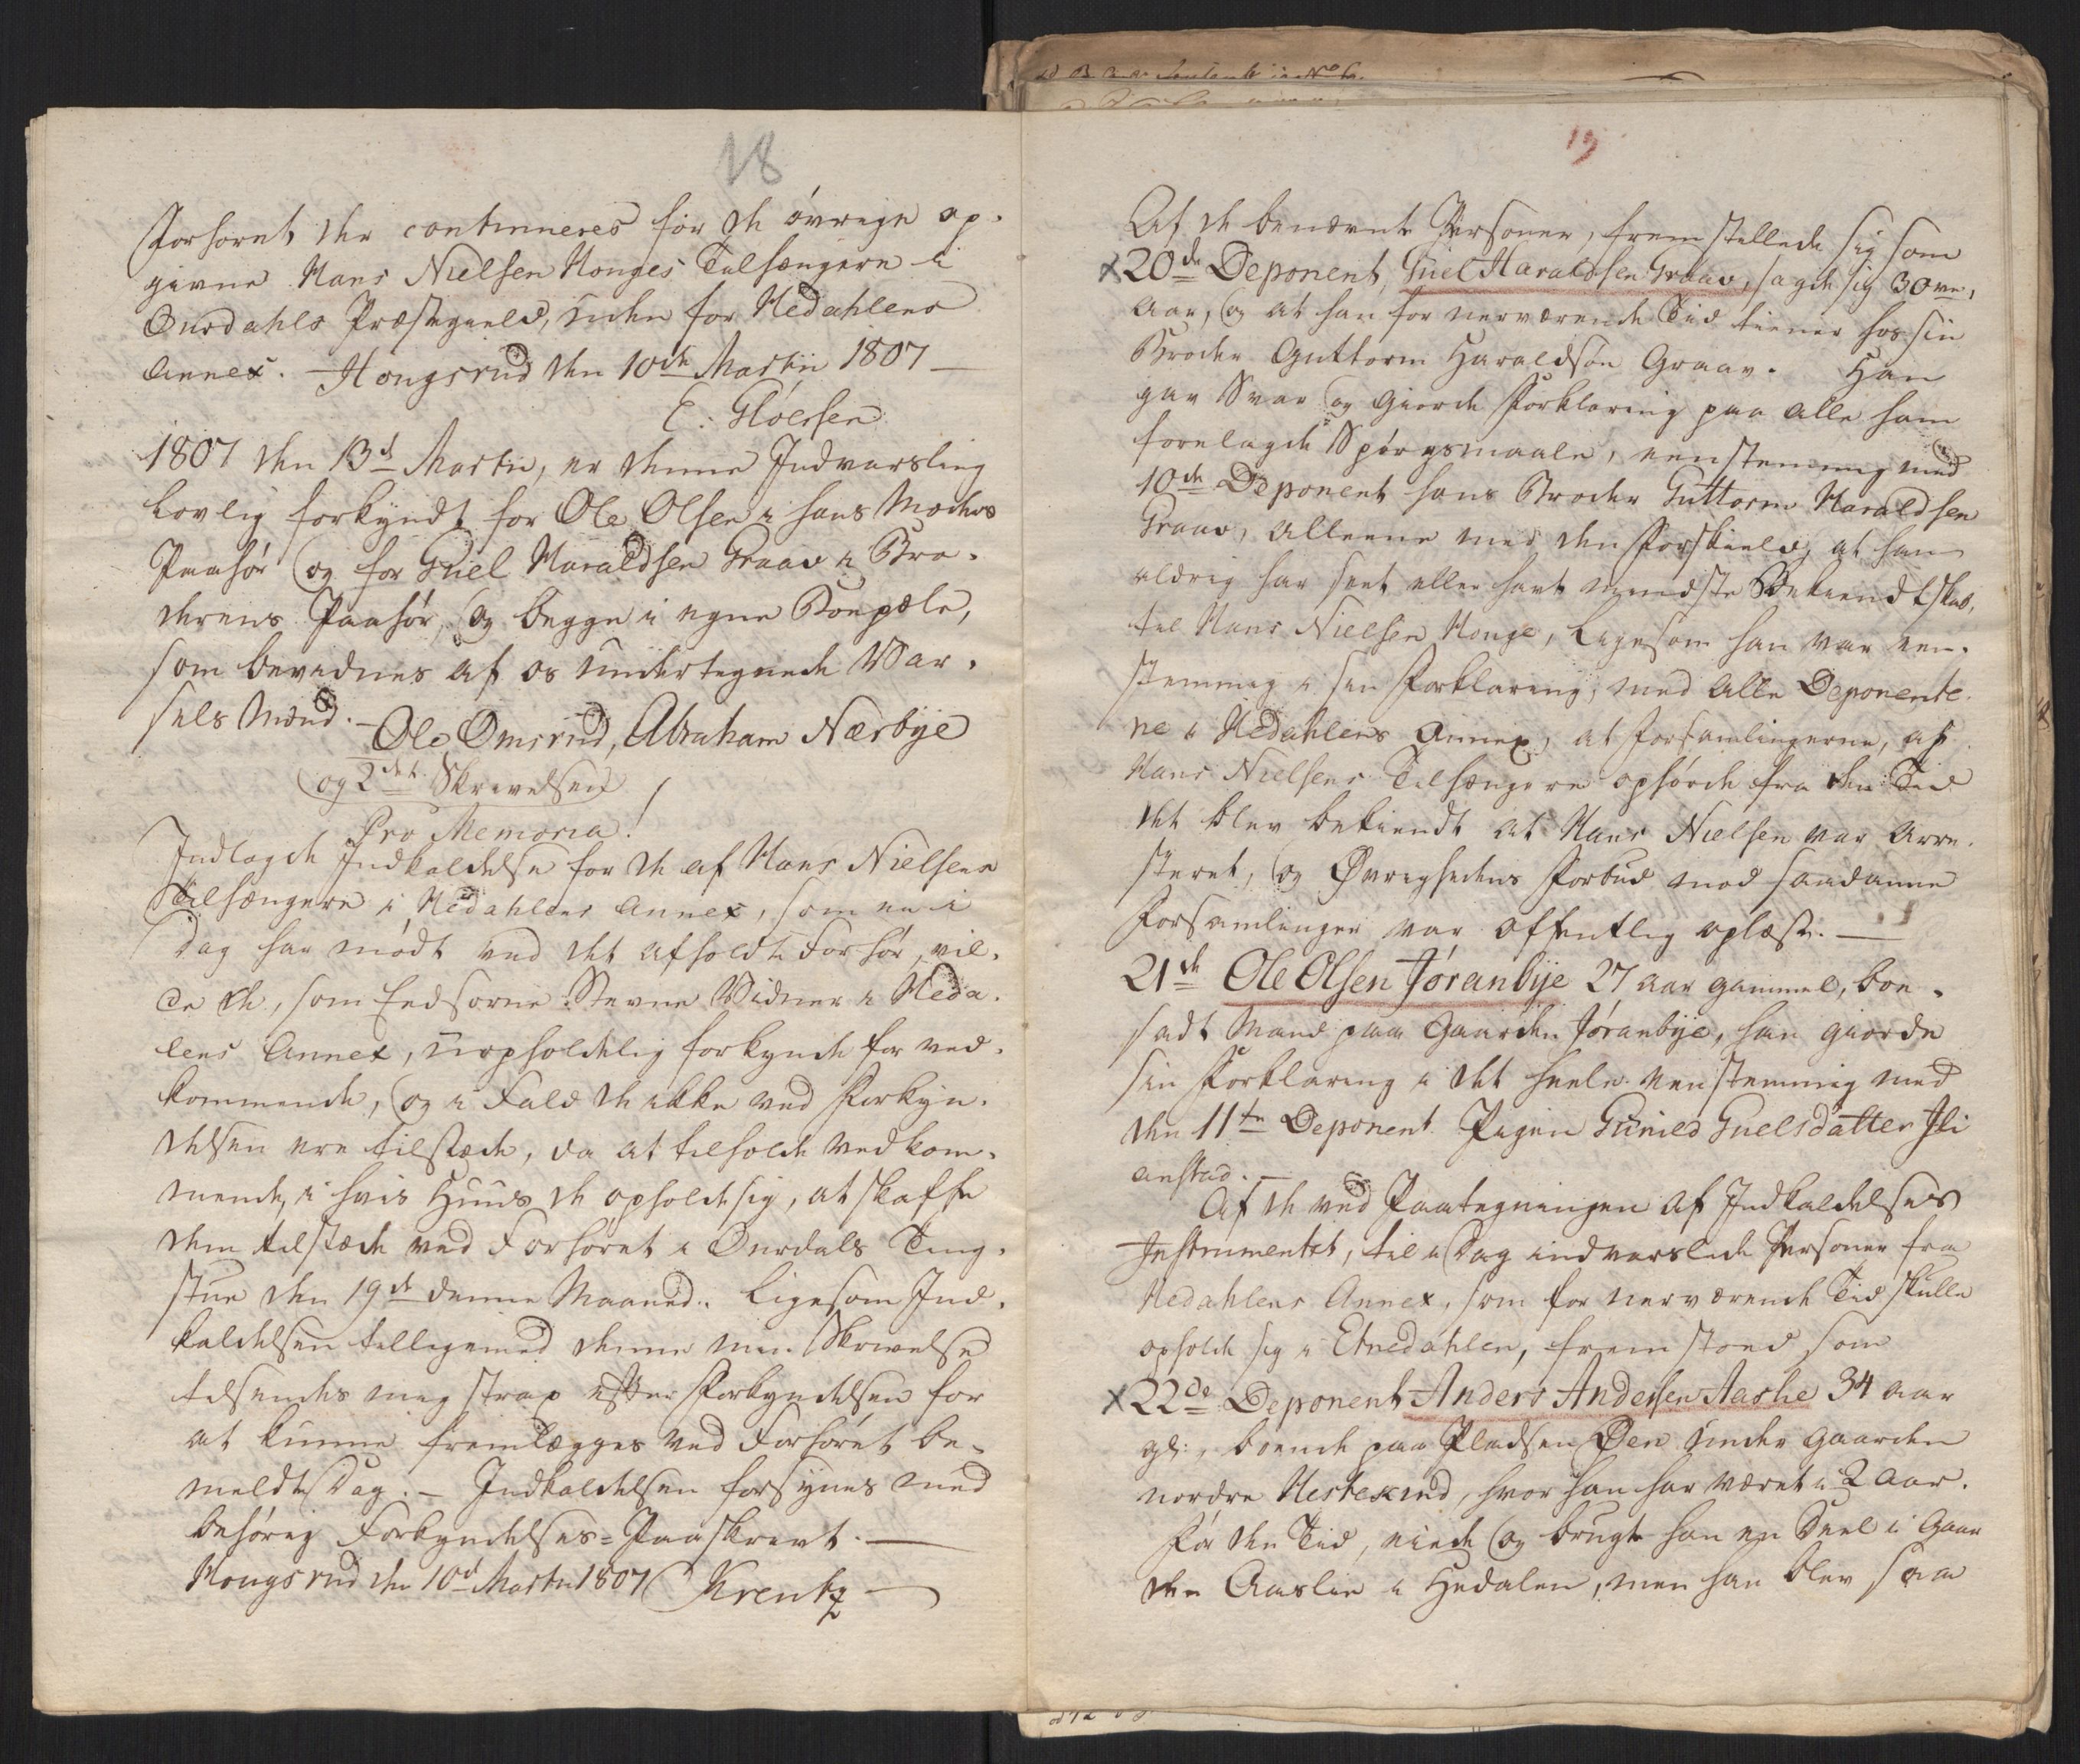 18
Forhøret der continueres for de øvrige op-
givne Hans Nielsen Houges Tilhængere i
Ourdahls Præstegield, uden for Hedahlens
Annex. Hougsrud den 10de Martii 1807 —
E: Gløersen
1807 den 13d Martii, er denne Indvarsling
lovlig forkyndt for Ole Olsen i hans Moders
Paahør og for Guel Haraldsen Graav i Bro-
derens Paahør, og begge i egne Boepæle,
som bevidnes af os undertegnede Var-
selsmænd. — Ole Omsrud, Abraham Nærbye
og 2det Skrivelsen
Pro Memoria!
Indlagde Indkaldelse for de af Hans Nielsens
Tilhængere i Hedahlens Annex, som ei i
Dag har mødt ved det afholdte Forhør, vil-
de De, som Eedsorne Stevne Vidner i Heda-
lens Annex, uopholdelig forkynde for ved-
kommende, og i Fald de ikke ved Forkyn-
delsen ere tilstæde, da at tilholde vedkom-
mende, i hvis Huus de opholde sig, at skaffe
dem tilstæde ved Forhøret i Ourdals Ting-
stue den 19de denne Maaned. Ligesom Ind-
kaldelsen tilligemed denne min Skrivelse
tilsendes mig strax efter Forkyndelsen for
at kunne fremlægges ved Forhøret be-
meldte Dag. — Indkaldelsen forsynes med
behørig Forkyndelses-Paaskrivt. —
Hougsrud den 10d Martii 1807 Krentz —
19
Af de benævnte Personer, fremstillede sig som
20de Deponent, Guel Haraldsen Graav, sagde sig 30ve
Aar, og at han for nerværende Tiid tiener hos sin
Broder Guttorm Haraldsøn Graav. Han
gav Svar og giorde Forklaring paa alle ham
forelagde Spørgsmaale, eenstemmig med
10de Deponent hans Broder Guttorm Haraldsen
Graav, alleene med den Forskield, at han
aldrig har seet eller havt mindste Bekiendtskab
til Hans Nielsen Houge, ligesom han var een-
stemmig i sin Forklaring, med alle Deponente-
ne i Hedahlens Annex, at Forsamlingerne, af
Hans Nielsens Tilhængere ophørde fra den Tiid
det blev bekiendt at Hans Nielsen var Arre-
steret, og Øvrighedens Forbud mod saadanne
Forsamlinger var offentlig oplæst. —
21de Ole Olsen Jøranbye 27 Aar gammel, boe-
sadt Mand paa Gaarden Jøranbye, han giorde
sin Forklaring i det heele eenstemmig med
den 11te Deponent Pigen Gunild Guelsdatter Ili
anstad. —
Af de ved Paategningen af Indkaldelses
Instrumentet, til i Dag indvarslede Personer fra
Hedahlens Annex, som for nerværende Tiid skulle
opholde sig i Etnedahlen, fremstoed som
22de Deponent Anders Andersen Aaslie 34 Aar
gl:, boende paa Pladsen Øen under Gaarden
nordre Hestekind, hvor han har været i 2 Aar.
Før den Tiid, eiede og brugte han en Deel i Gaar
den Aaslie i Hedalen, men han blev saa